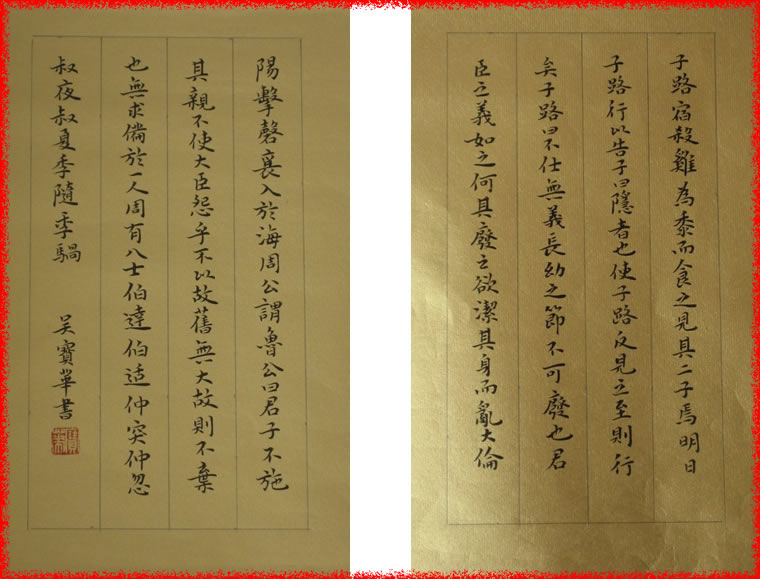 子路宿殺雞為黍而食之見其二子焉明日
子路行以告子曰隱者也使子路反見之至則行
矣子路曰不仕無義長幼之節不可廢也君
臣之義如之何其廢之欲潔其身而亂大倫
陽擊磬襄入於海周公謂魯公曰君子不施
其親不使大臣怨乎不以故舊無大故則不棄
也無求備於一人周有八士伯達伯适仲突仲忽
叔夜叔夏季隨季騧 吳寶華書